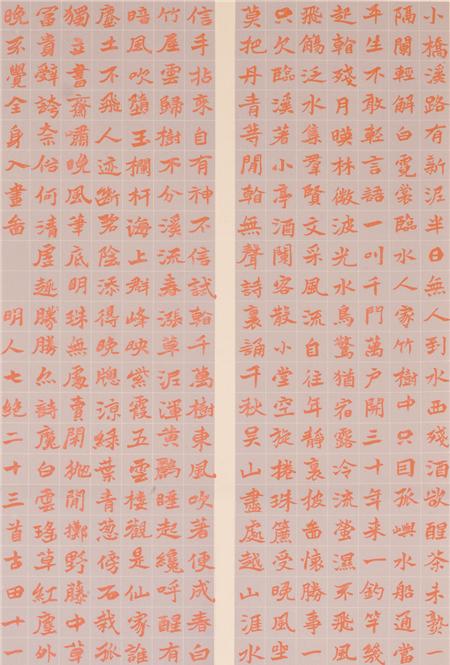 小橋溪路有新泥半日無人到水西殘酒欲醒茶未熟一
隔闌輕解白霓裳臨水人家竹樹中只因孤嶼水船通嘗
平生不敢輕言語一叫千門萬戶開三十年來一釣竿幾
起翰殘月暎林微波光水鳥驚猶宿露冷流螢濕不飛風
飛觴泛水集羣賢文采風流自往年靜裏披啚懷勝事一
只欠臨溪著小亭酒闌客散小堂空旋捲珠簾受晚風坐
莫把丹青等閒翰無聲詩裏誦千秋吳山盡處越山涯水
信手拈來自有神不信試翰千萬樹東風吹著便成春白
竹屋雲歸樹不分溪流春漲草泥渾黃鸝睡起纔呼醒有
暗風吹墮玉欄杆海上群峰映紫霞五雲樓觀是仙家誰
塵土不飛人迹斷碧陰添得晚牕涼綠葉青葱傍石栽孤
獨立書齋嘯晚風筆底明珠無處賣閑拋閒擲野藤中草
冨貴聲誇奈俗何清虛趣勝勝詩魔白雲瑤草紅塵外
晚不覺全身入畫啚 明人七絕二十三首古田十一